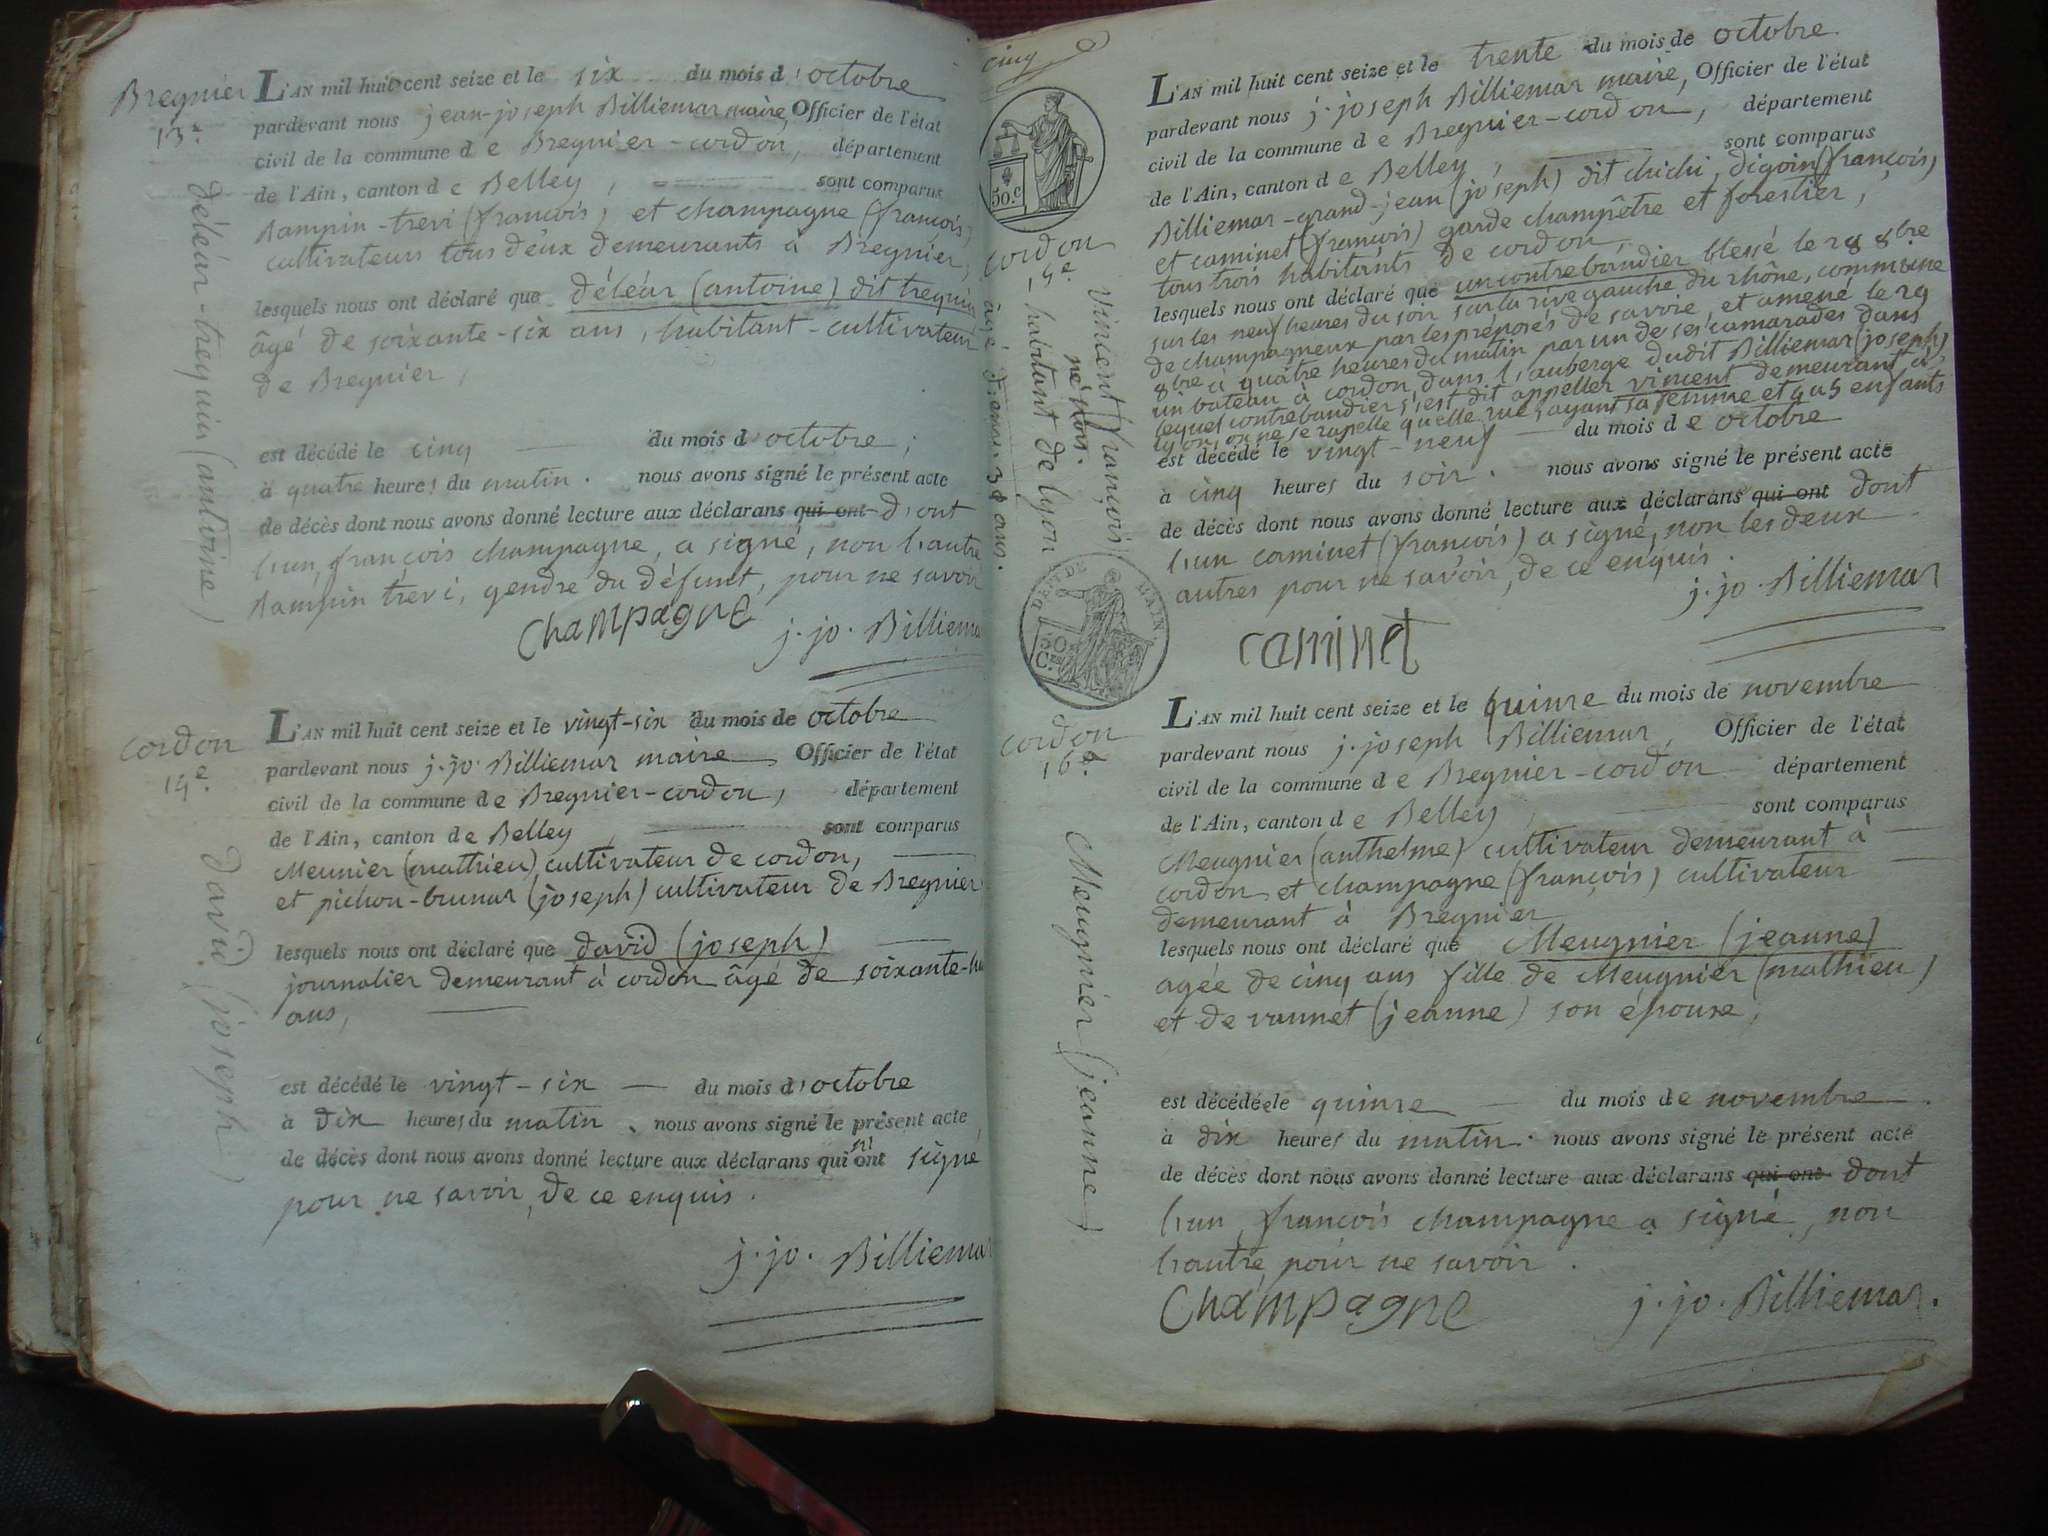 Bregnier
13.e
déléar-trequin (antoine)
L'AN mil huit cent seize et le six du mois d'octobre
pardevant nous jean-joseph Billiemar maire, Officier de l'état
civil de la commune de Bregnier-cordon, département
de l'Ain, canton de Belley, sont comparus
Rampin-trevi (françois) et champagne (françois)
cultivateurs tous deux demeurants à Bregnier,
lesquels nous ont déclaré que déléar (antoine) dit trequin
âgé de soixante-six ans, habitant-cultivateur
de Bregnier,
est décédé le cinq du mois d'octobre,
à quatre heures du matin. nous avons signé le présent acte
de décès dont nous avons donné lecture aux déclarans qui ont dont
l'un, françois champagne, a signé, non l'autre
Rampin trevi, gendre du défunt, pour ne savoir
Champagne
j. jo. Billiema
cordon
14.e
david (joseph)
L'AN mil huit cent seize et le vingt-six du mois de octobre
pardevant nous j. jo. Billiemar maire Officier de l'état
civil de la commune de Bregnier-cordon, département
de l'Ain, canton de Belley, sont comparus
Meunier (mathieu) cultivateur de cordon,
et pichon-brunar (joseph) cultivateur de Bregnier
lesquels nous ont déclaré que david (joseph)
journalier demeurant à cordon âgé de soixante-hu
ans,
est décédé le vingt-six du mois d'octobre
à dix heures du matin, nous avons signé le présent acte
de décès dont nous avons donné lecture aux déclarans qui n'ont signé
pour ne savoir, de ce enquis.
j. jo. Billiemar
cinq
50.c
cordon
15.e
vincent (françois)
né nois.
habitant de lyon
âgé d'env. 38 ans.
DÉPT DE L'AIN.
50
C.es
L'AN mil huit cent seize et le trente du mois de octobre
pardevant nous j. joseph Billiemar maire, Officier de l'état
civil de la commune de Bregnier-cordon, département
de l'Ain, canton de Belley, sont comparus
Billiemar-grand-jean (joseph) dit chichi, digoin (françois)
et caminet (françois) garde champêtre et forestier,
tous trois habitants de cordon,
lesquels nous ont déclaré que un contrebandier blessé le 28 8bre
sur les neuf heures du soir sur la rive gauche du rhône, commune
de champagneux par les préposés de savoie, et amené le 29
8bre à quatre heures du matin par un de ses camarades dans
un bateau à cordon, dans l'auberge dudit Billiemar (joseph)
lequel contrebandier s'est dit appeller vincent demeurant à
lyon, on ne se rapelle quelle rue, ayant sa femme et 4 a 5 enfants
est décédé le vingt-neuf du mois de octobre
à cinq heures du soir. nous avons signé le présent acte
de décès dont nous avons donné lecture aux déclarans qui ont dont
l'un caminet (françois) a signé, non les deux
autres pour ne savoir, de ce enquis.
j. jo. Billiemar
caminet
cordon
16.e
Meugnier (jeanne)
L'AN mil huit cent seize et le quinze du mois de novembre
pardevant nous j. joseph Billiemar, Officier de l'état
civil de la commune de Bregnier-cordon département
de l'Ain, canton de Belley, sont comparus
Meugnier (anthelme) cultivateur demeurant à
cordon et champagne (françois) cultivateur
demeurant à Bregnier
lesquels nous ont déclaré que Meugnier (jeanne)
agée de cinq ans fille de Meugnier (mathieu)
et de vannet (jeanne) son épouse,
est décédée le quinze du mois de novembre
à dix heures du matin. nous avons signé le présent acte
de décès dont nous avons donné lecture aux déclarans qui ont dont
l'un, françois champagne a signé, non
l'autre pour ne savoir.
Champagne
j. jo. Billiemar.